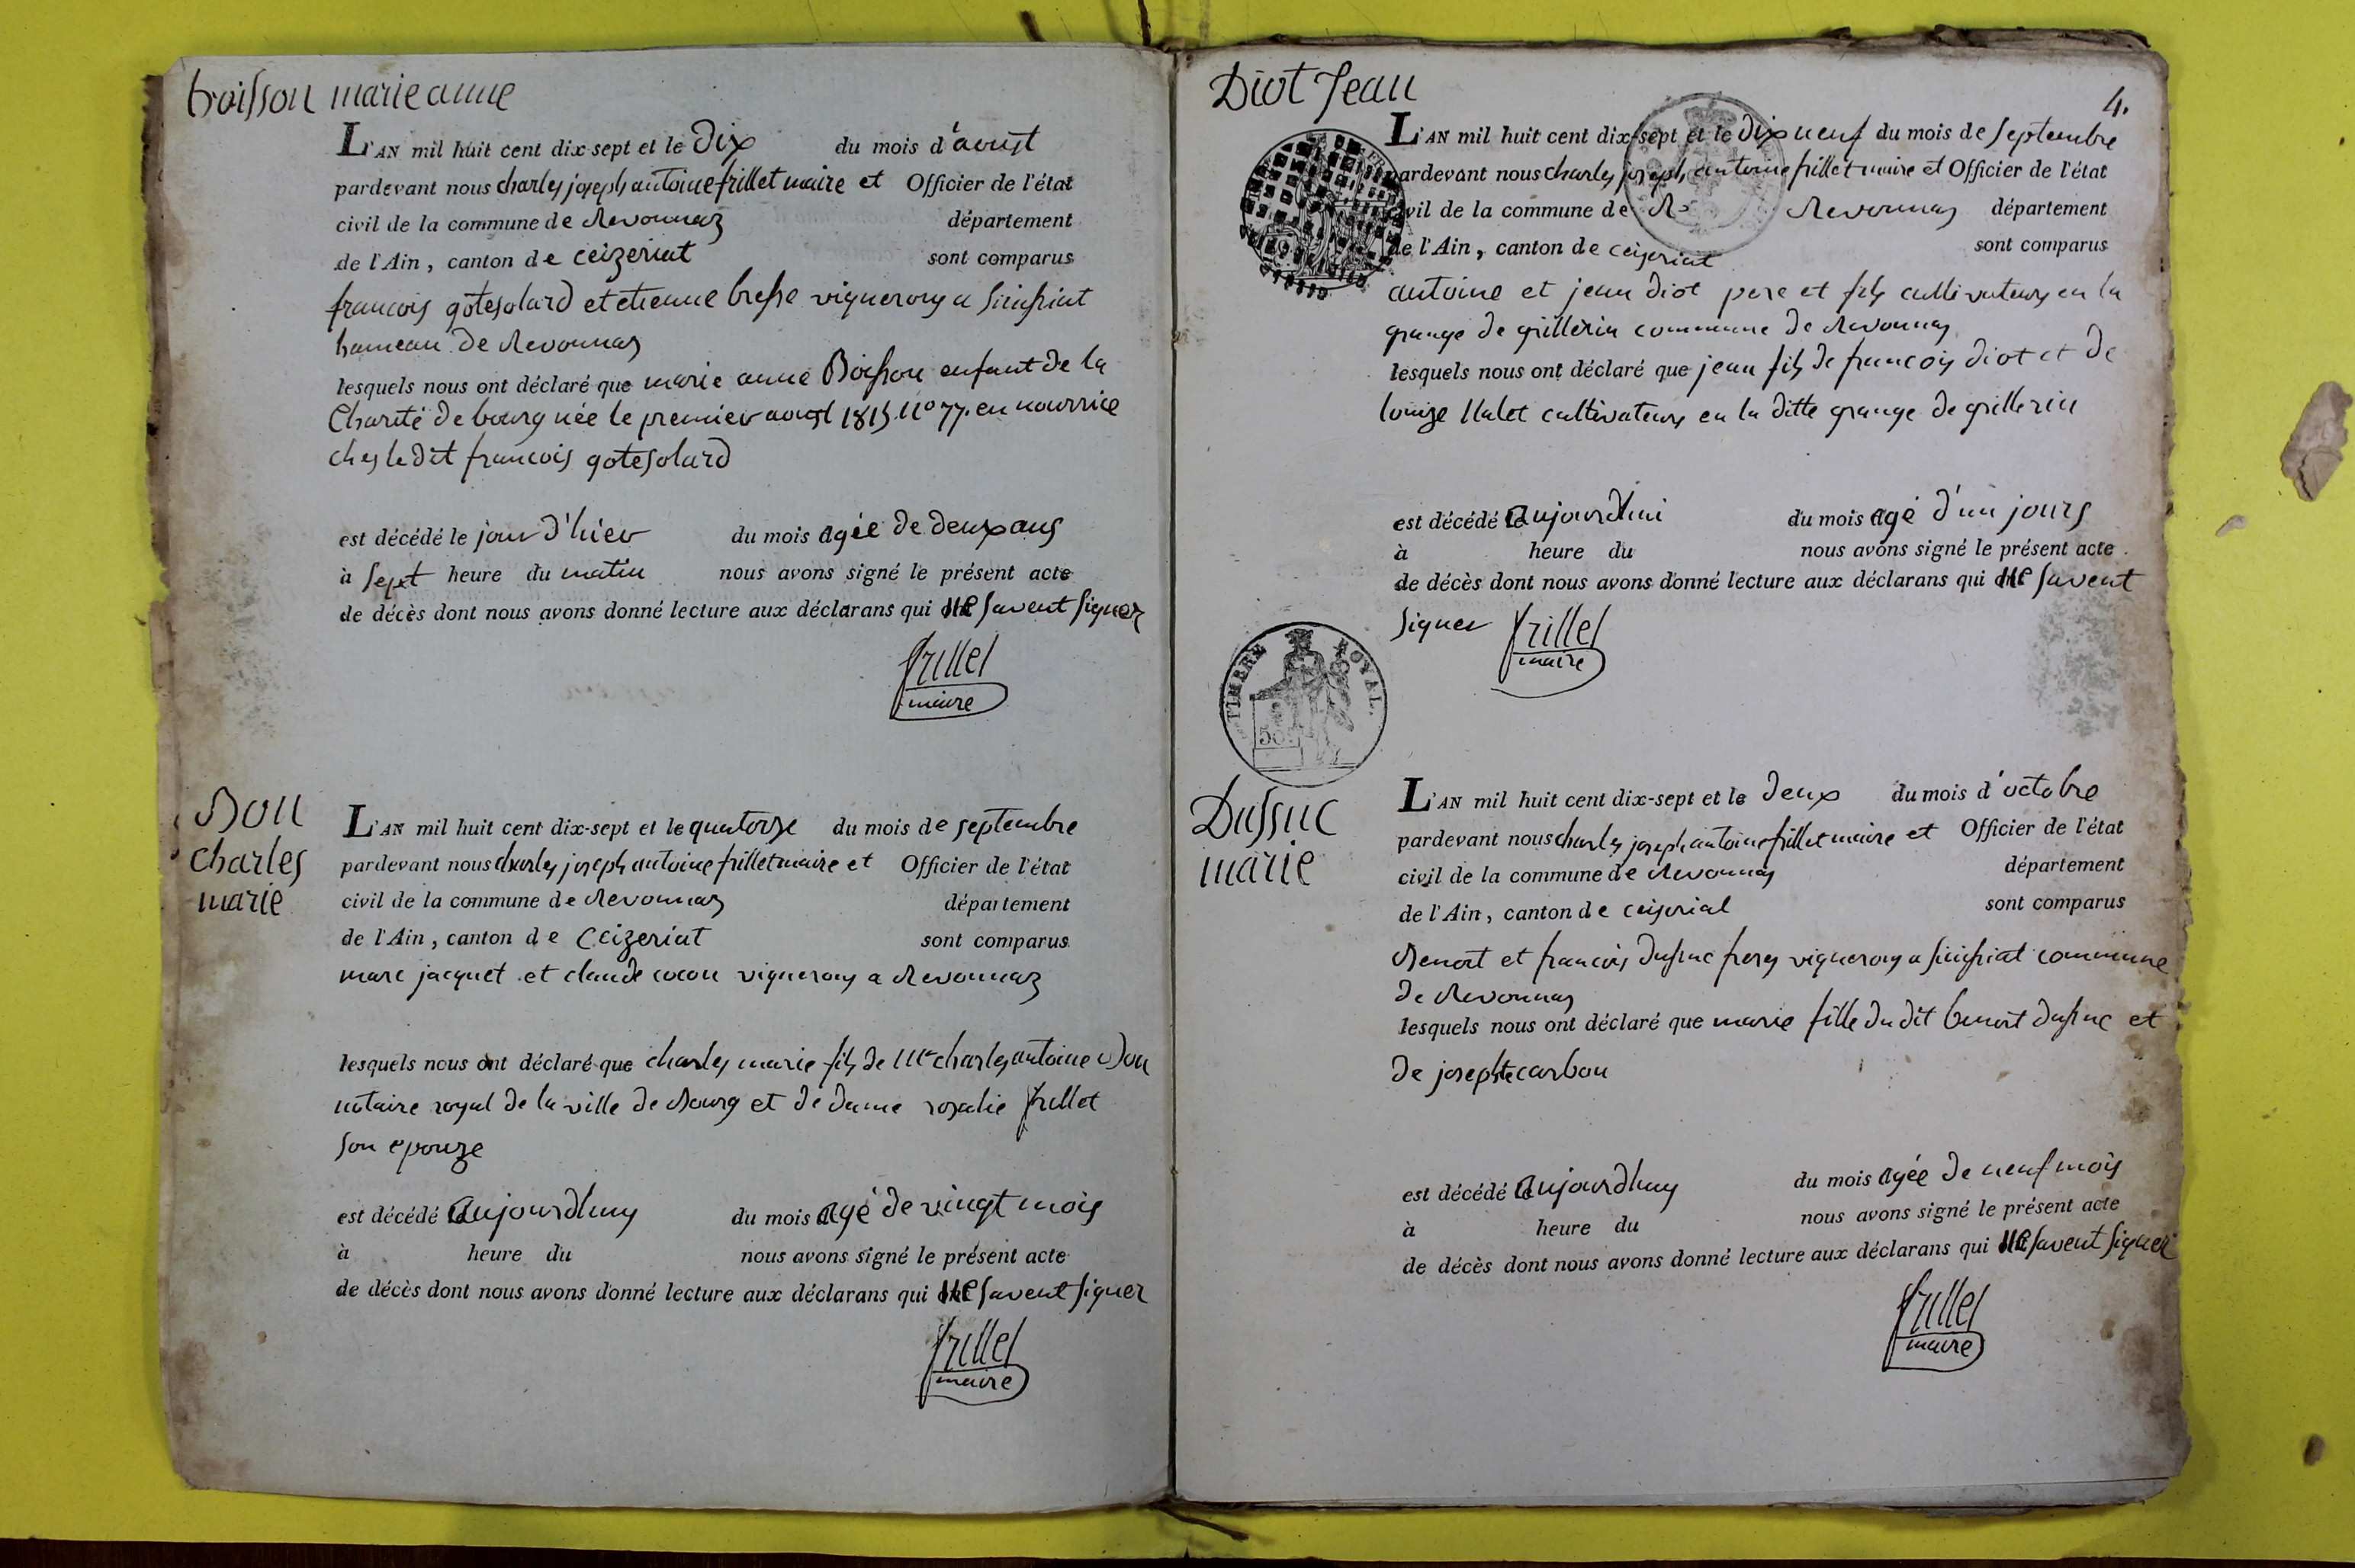 boisson marie anne
L'AN mil huit cent dix-sept et le Dix du mois d'aoust
pardevant nous charles joseph antoine frillet maire et Officier de l'état
civil de la commune de Revonnaz département
de l'Ain, canton de ceizeriat sont comparus
francois gotesolard et etienne bresse vignerons a Sinissiat
hameau de Revonnas
lesquels nous ont déclaré que marie anne Boisson enfant de la
Charité de bourg née le premier aoust 1815 n° 77. en nourrice
ches le dit francois gotesolard
est décédé le jour d'hier du mois agée de deux ans
à sept heure du matin nous avons signé le présent acte
de décès dont nous avons donné lecture aux déclarans qui ne savent signer
frillet
maire
Bon
charles
marie
L'AN mil huit cent dix-sept et le quatorze du mois de septembre
pardevant nous charles joseph antoine frillet maire et Officier de l'état
civil de la commune de Revonnaz département
de l'Ain, canton de Ceizeriat sont comparus
marc jacquet et claude cocon vignerons a Revonnaz
lesquels nous ont déclaré que charles marie fils de Me charles antoine Bon
notaire royal de la ville de Bourg et de dame rosalie frillet
son epouze
est décédé aujourdhuy du mois agé de vingt mois
à heure du nous avons signé le présent acte
de décès dont nous avons donné lecture aux déclarans qui ne savent signer
frillet
maire
Diot Jean
4.
L'AN mil huit cent dix-sept et le dix neuf du mois de septembre
pardevant nous charles joseph antoine frillet maire et Officier de l'état
civil de la commune de R Revonnas département
de l'Ain, canton de ceizeriat sont comparus
antoine et jean diot pere et fils cultivateurs en la
grange de grillerin commune de Revonnas
lesquels nous ont déclaré que jean fils de francois diot et de
louize Nalet cultivateurs en la ditte grange de grillerin
est décédé aujourdhui du mois agé d'un jours
à heure du nous avons signé le présent acte
de décès dont nous avons donné lecture aux déclarans qui ne savent
signer frillet
maire
TIMBRE ROYAL.
50
Dussuc
marie
L'AN mil huit cent dix-sept et le deux du mois d'octobre
pardevant nous charles joseph antoine frillet maire et Officier de l'état
civil de la commune de Revonnas département
de l'Ain, canton de ceizeriat sont comparus
Benoit et francois dussuc freres vignerons a sinissiat commune
de Revonnas
lesquels nous ont déclaré que marie fille du dit benoit dussuc et
de josephte carbon
est décédé aujourdhuy du mois agée de neuf mois
à heure du nous avons signé le présent acte
de décès dont nous avons donné lecture aux déclarans qui ne savent signer
frillet
maire